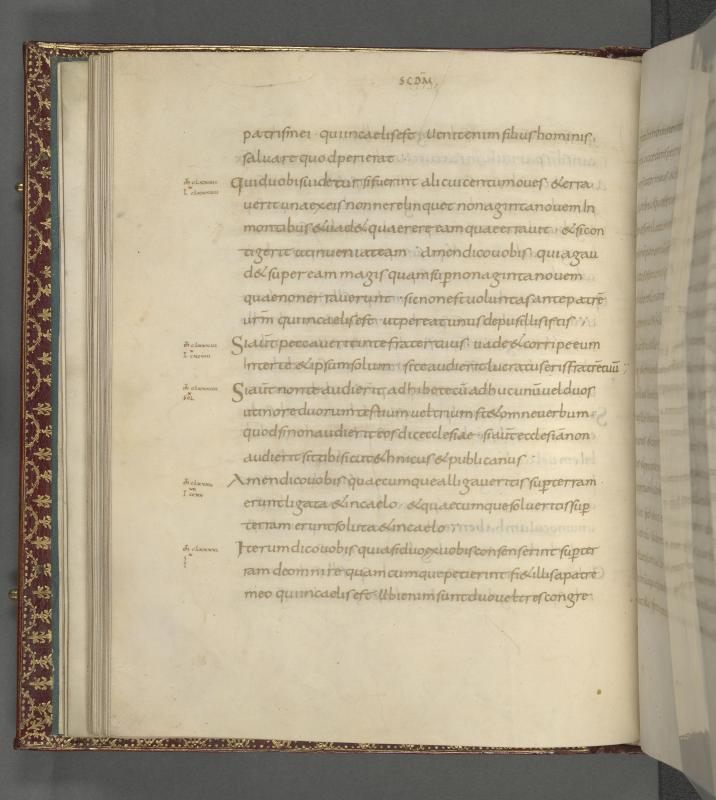 SCDM̄
patris mei qui in caelis est Uenit enim filius hominis
saluare quod perierat
Quid uobis uidetur si fuerint alicui centum oues & erra
uerit una ex eis nonne relinquet nonaginta nouem In
montibus & uadet quaerere eam quae errauit & si con
tigerit ut inueniat eam Amen dico uobis quia gau
det super eam magis quam sup nonaginta nouem
quae non errauerunt sic non est uoluntas ante patrē
urm̄ qui in caelis est ut pereat unus de pusillis istis
Si aut̄ peccauerit in te frater tuus uade & corripe eum
Inter te & ipsum solum si te audierit lucratus eris fratrē tuū
Si aut̄ non te audierit adhibe tecū adhuc unū uel duos
ut in ore duorum testium uel trium st& omne uerbum
quod si non audierit eos dic ecclesiae si aut̄ ecclesiā non
audierit sit tibi sicut &hnicus & publicanus
Amen dico uobis quaecumque alligaueritis sup̄ terram
erunt ligata & in caelo & quaecumque solueritis sup̄
terram erunt soluta & in caelo
Iterum dico uobis quia si duo ex uobis consenserint sup̄ ter
ram de omni re quamcumque petierint fi& illis a patre
meo qui in caelis est Ubi enim sunt duo uel tres congre